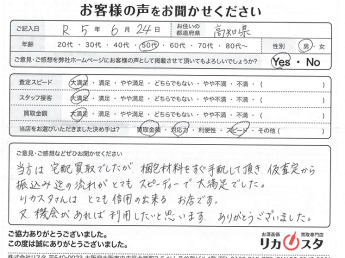 お客様の声をお聞かせください
ご記入日 R 5年 6月 24日 お住いの都道府県 高知県
年齢 20代・30代・40代・50代・60代・70代・80代〜 性別 男・女
ご意見・ご感想を弊社ホームページにお客様の声として掲載させて頂いてもよろしいでしょうか? Yes・No
査定スピード 大満足・満足・やや満足・どちらでもない・やや不満・不満・( )
スタッフ接客 大満足・満足・やや満足・どちらでもない・やや不満・不満・( )
買取金額 大満足・満足・やや満足・どちらでもない・やや不満・不満・( )
当店をお選びいただきました決め手は? 買取金額・対応力・利便性・スピード・その他( )
ご意見・ご感想などぜひお聞かせください
当方は宅配買取でしたが 梱包材料もすぐ手配して頂き 仮査定から
振込み迄の流れがとてもスピーディーで大満足でした。
リカスタさんは とても信用の出来る お店です。
又 機会があれば 利用したいと思います ありがとうございました。
ご協力ありがとうございました。
この度は誠にありがとうございました。
お酒高価 買取専門店
リカスタ